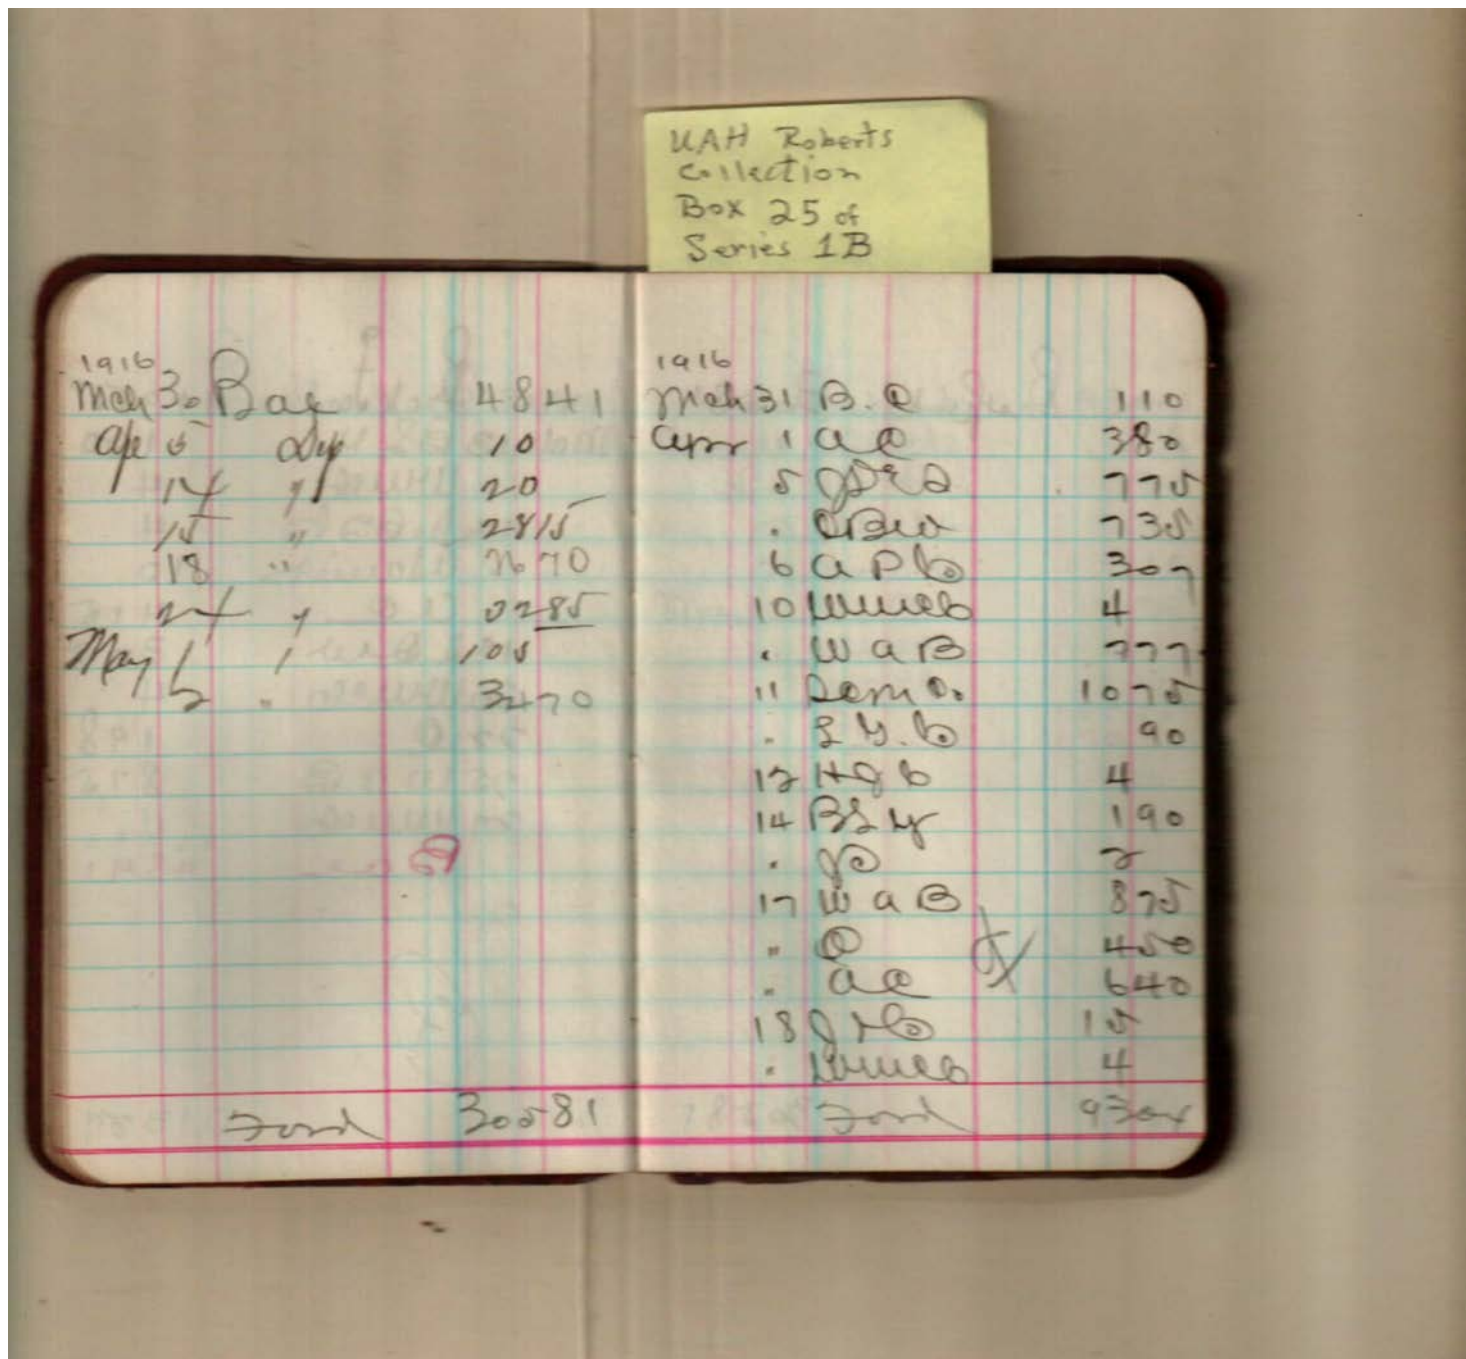 UAH Roberts
Collection
Box 25 of
Series 1B
1916
Mch 30 Bal 4841
Ap 5 Dep 10
14 " 20
15 " 2815
18 " 70
24 " 85
May 1 " 105
2 " 3270
Ford 30581
1916
Mch 31 B.C 110
Apr 1 a c 380
5 775
. CBW 735
6 a P Co 307
10 4
. W a B 777
11 1075
. L G. Co 90
12 H J Co 4
14 190
. 2
17 W a B 875
" C 450
" a c 640
18 15
. 4
Ford